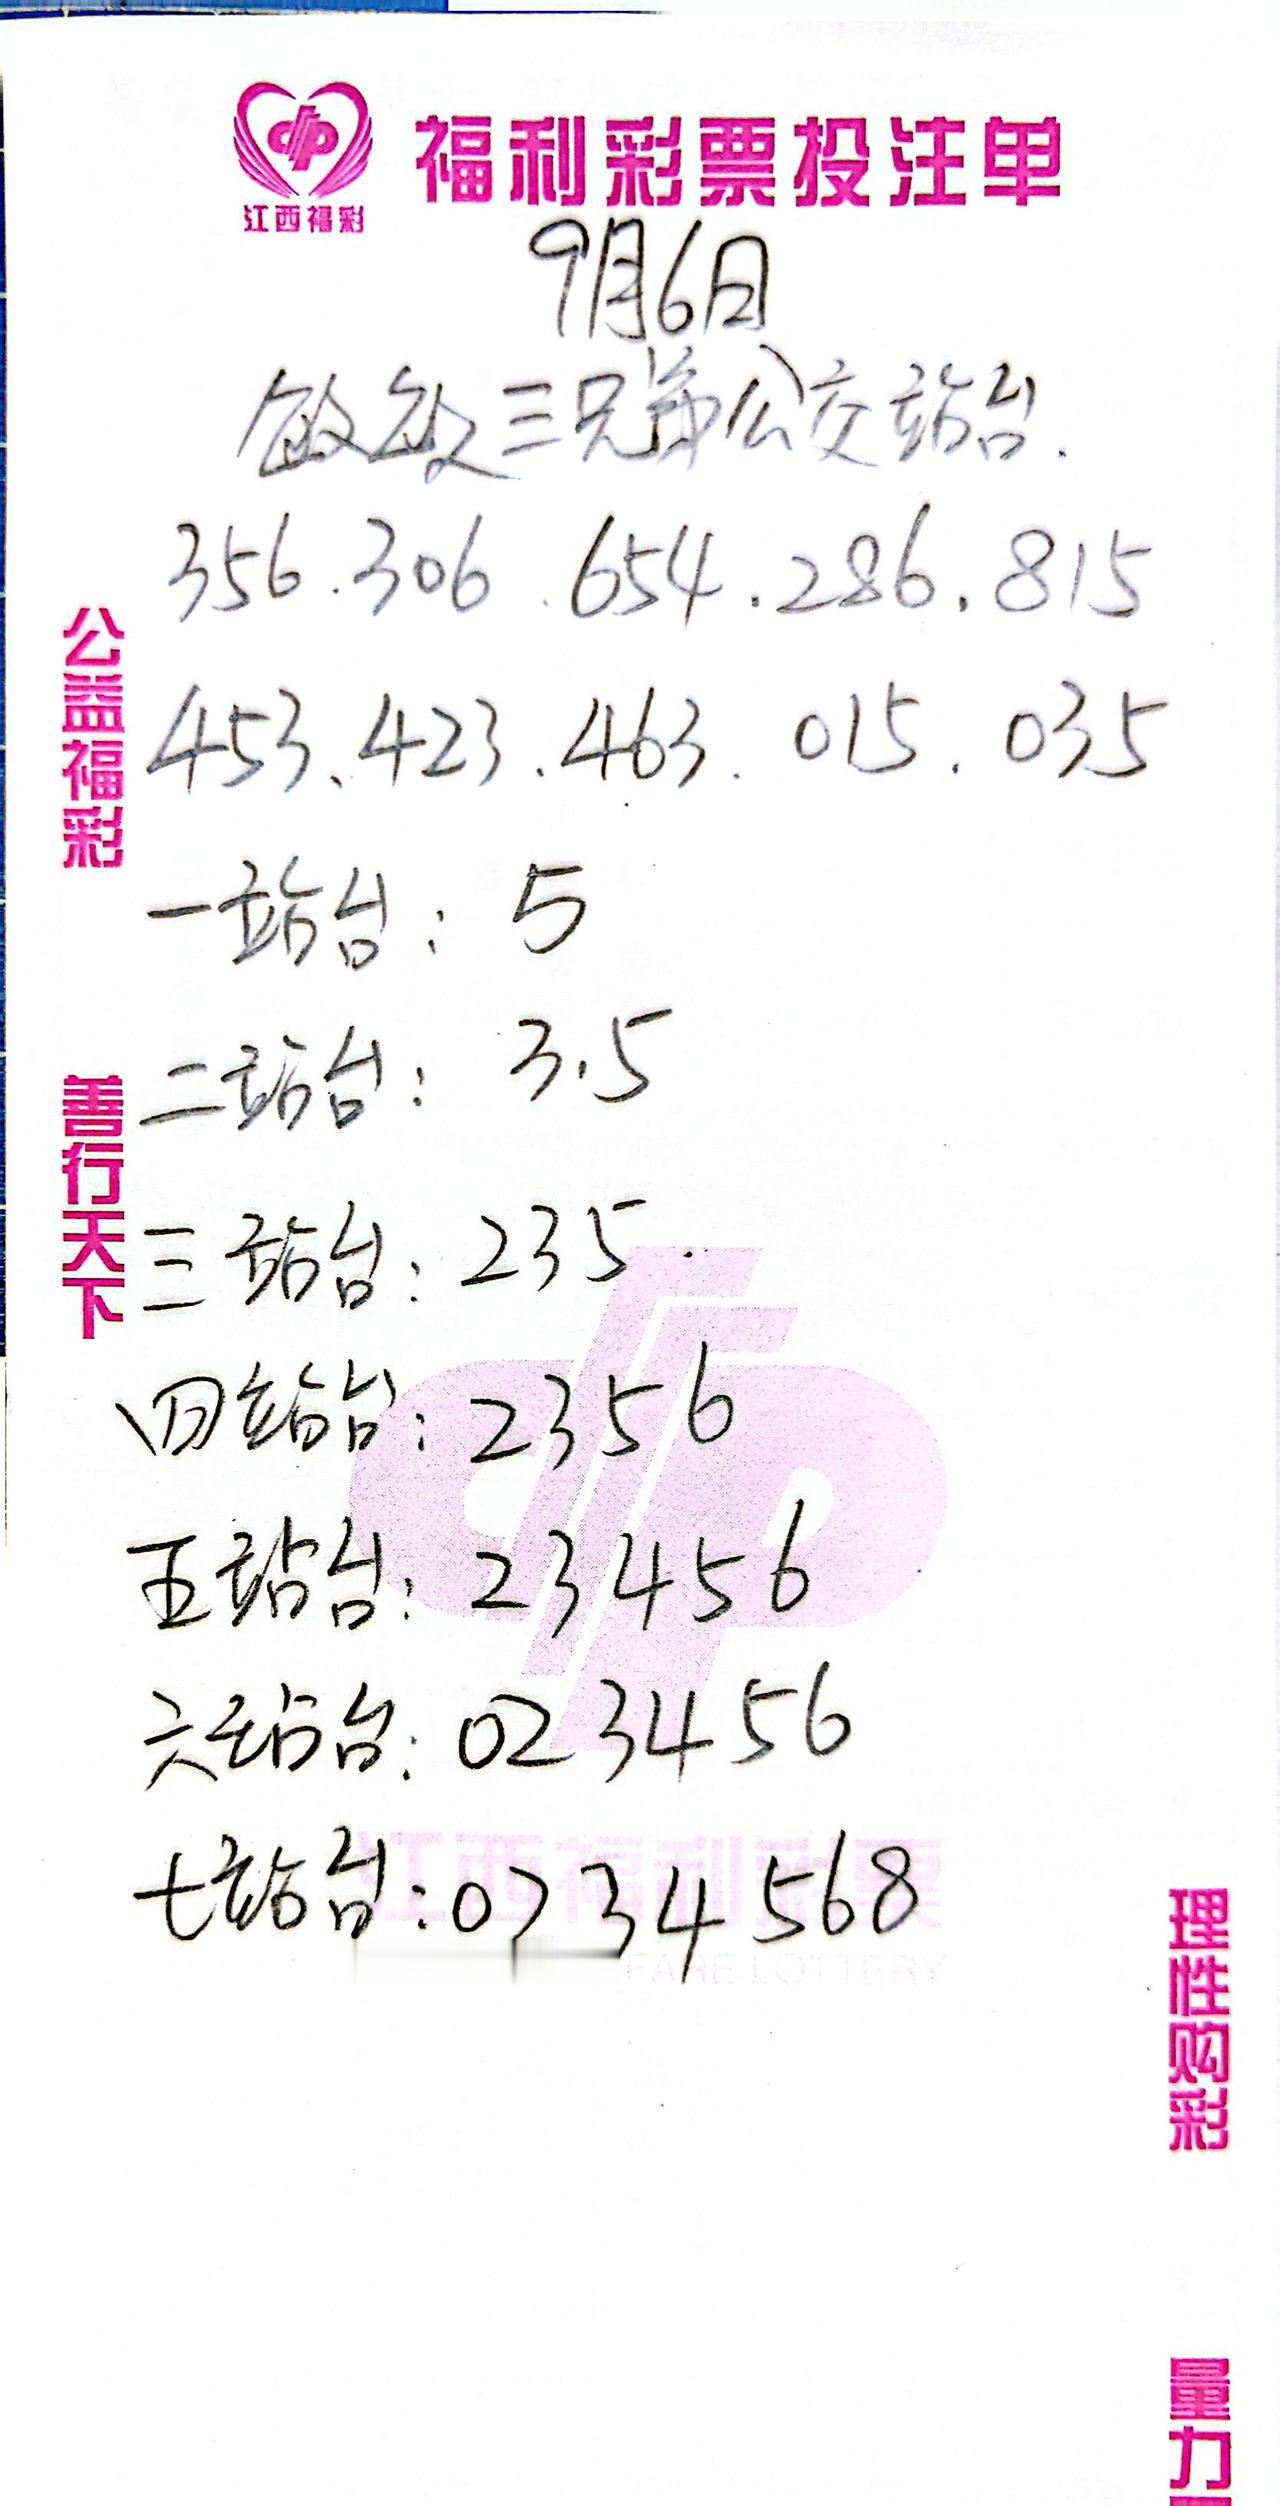 福利彩票投注单
江西福彩
9月6日
敏敏三兄弟公交站台.
356.306.654.286.815
453.423.463.015.035
一站台：5
二站台：3.5
三站台：235.
四站台：2356
五站台：23456
六站台：023456
七站台：0234568
公益福彩
善行天下
江西福利彩票
FARE LOTTERY
理性购彩
量力